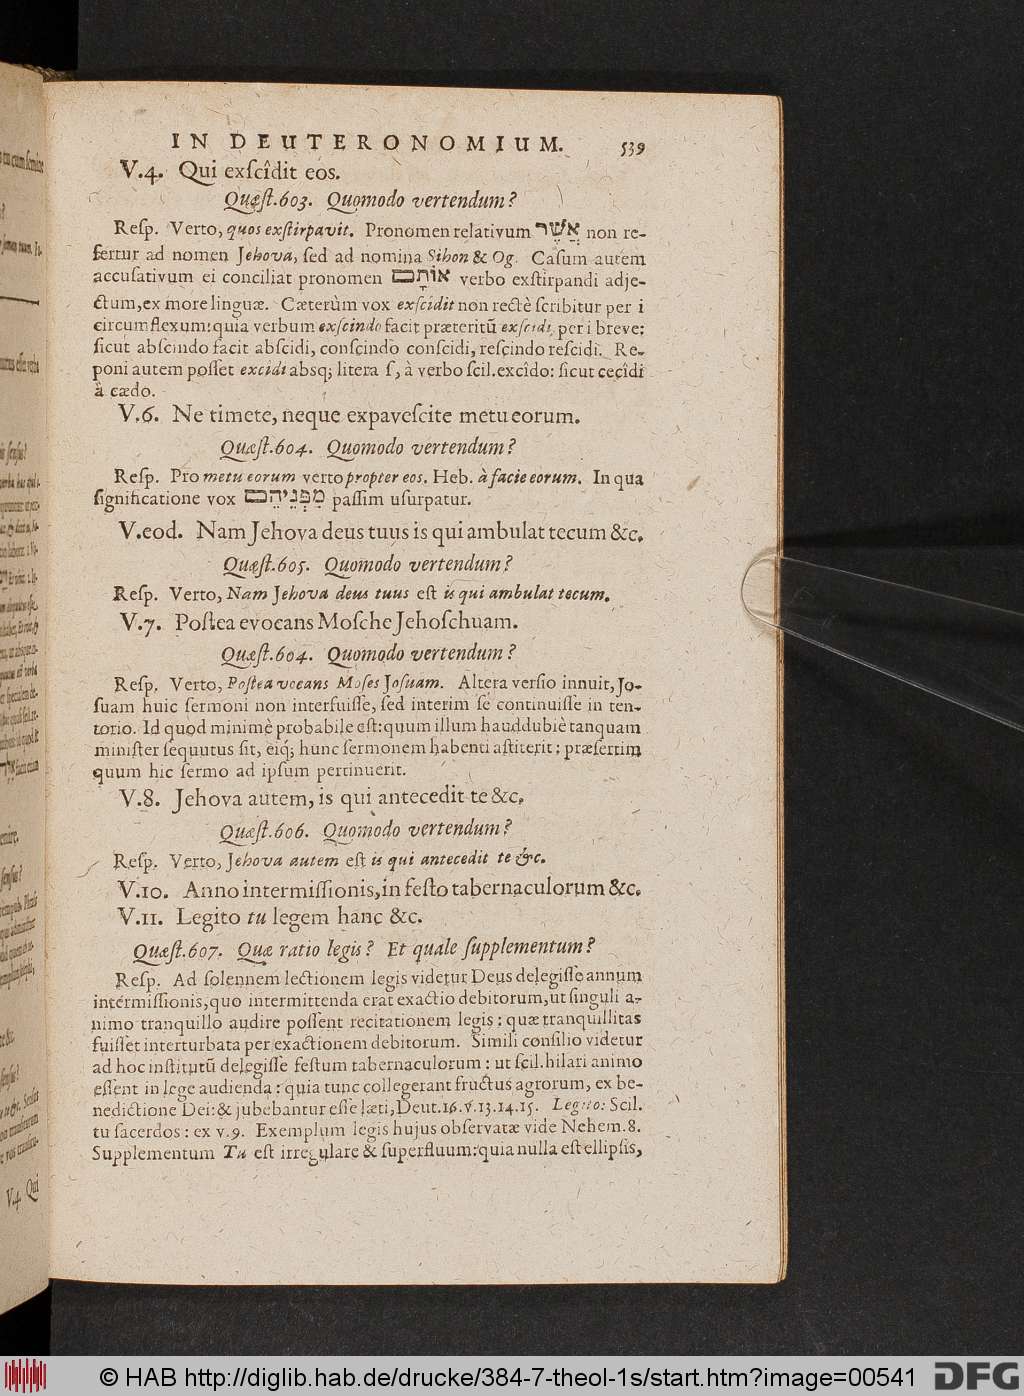 IN DEUTERONOMIUM. 539
V.4. Qui exſcîdit eos.
Quæſt.603. Quomodo vertendum?
Reſp. Verto, quos exſtirpavit. Pronomen relativum אֲשֶׁר non re-
fertur ad nomen Jehova, ſed ad nomina Sihon & Og. Caſum autem
accuſativum ei conciliat pronomen אוֹתָם verbo exſtirpandi adje-
ctum, ex more linguæ. Cæterùm vox exſcîdit non rectè ſcribitur per i
circumflexum: quia verbum exſcindo facit præteritũ exſcidi, per i breve:
ſicut abſcindo facit abſcidi, conſcindo conſcidi, reſcindo reſcidi. Re-
poni autem poſſet excîdi absq; litera ſ, à verbo ſcil. excîdo: ſicut cecîdi
à cædo.
V.6. Ne timete, neque expaveſcite metu eorum.
Quæſt.604. Quomodo vertendum?
Reſp. Pro metu eorum verto propter eos. Heb. à facie eorum. In qua
ſignificatione vox מִפְּנֵיהֶם paſſim uſurpatur.
V.eod. Nam Jehova deus tuus is qui ambulat tecum &c.
Quæſt.605. Quomodo vertendum?
Reſp. Verto, Nam Jehova deus tuus eſt is qui ambulat tecum.
V.7. Poſtea evocans Moſche Jehoſchuam.
Quæſt.604. Quomodo vertendum?
Reſp. Verto, Poſtea vocans Moſes Joſuam. Altera verſio innuit, Jo-
ſuam huic ſermoni non interfuiſſe, ſed interim ſe continuiſſe in ten-
torio. Id quod minimè probabile eſt: quum illum hauddubiè tanquam
miniſter ſequutus ſit, eiq; hunc ſermonem habenti aſtiterit: præſertim
quum hic ſermo ad ipſum pertinuerit.
V.8. Jehova autem, is qui antecedit te &c.
Quæſt.606. Quomodo vertendum?
Reſp. Verto, Jehova autem eſt is qui antecedit te &c.
V.10. Anno intermiſſionis, in feſto tabernaculorum &c.
V.11. Legito tu legem hanc &c.
Quæſt.607. Quæ ratio legis? Et quale ſupplementum?
Reſp. Ad ſolennem lectionem legis videtur Deus delegiſſe annum
intermiſſionis, quo intermittenda erat exactio debitorum, ut ſinguli a-
nimo tranquillo audire poſſent recitationem legis: quæ tranquillitas
fuiſſet interturbata per exactionem debitorum. Simili conſilio videtur
ad hoc inſtitutũ delegiſſe feſtum tabernaculorum: ut ſcil. hilari animo
eſſent in lege audienda: quia tunc collegerant fructus agrorum, ex be-
nedictione Dei: & jubebantur eſſe læti, Deut.16.v.13.14.15. Legito: Scil.
tu ſacerdos: ex v.9. Exemplum legis hujus obſervatæ vide Nehem.8.
Supplementum Tu eſt irregulare & ſuperfluum: quia nulla eſt ellipſis,
V.4. Qui
© HAB http://diglib.hab.de/drucke/384-7-theol-1s/start.htm?image=00541
DFG